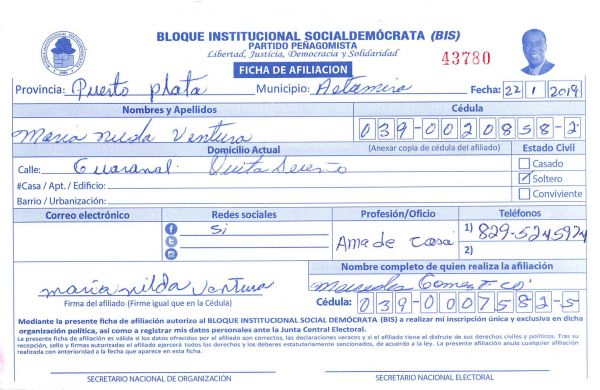 BLOQUE INSTITUCIONAL SOCIALDEMÓCRATA (BIS)
PARTIDO PEÑAGOMISTA
Libertad, Justicia, Democracia y Solidaridad
43780
FICHA DE AFILIACION
Provincia: Puerto Plata Municipio: Altamira Fecha: 22 1 2019
Nombres y Apellidos Cédula
Maria Nilda Ventura 039-0020858-2
Domicilio Actual (Anexar copia de cédula del afiliado) Estado Civil
Calle: Quita Sueño Casado
#Casa / Apt. / Edificio: Soltero
Barrio / Urbanización: Conviviente
Correo electrónico Redes sociales Profesión/Oficio Teléfonos
Si Ama de casa 1) 829-5245974
2)
Nombre completo de quien realiza la afiliación
maria nilda Ventura Mercedes
Firma del afiliado (Firme igual que en la Cédula) Cédula: 039-0007582-5
Mediante la presente ficha de afiliación autorizo al BLOQUE INSTITUCIONAL SOCIAL DEMÓCRATA (BIS) a realizar mi inscripción única y exclusiva en dicha
organización política, así como a registrar mis datos personales ante la Junta Central Electoral.
La presente ficha de afiliación es válida si los datos ofrecidos por el afiliado son correctos, las declaraciones veraces y si el afiliado tiene el disfrute de sus derechos civiles y políticos. Tras su
recepción, sello y firmas autorizadas el afiliado ejercerá todos los derechos y los deberes estatutariamente sancionados, de acuerdo a la ley. La presente afiliación anula cualquier afiliación
realizada con anterioridad a la fecha que aparece en esta ficha.
SECRETARIO NACIONAL DE ORGANIZACIÓN SECRETARIO NACIONAL ELECTORAL